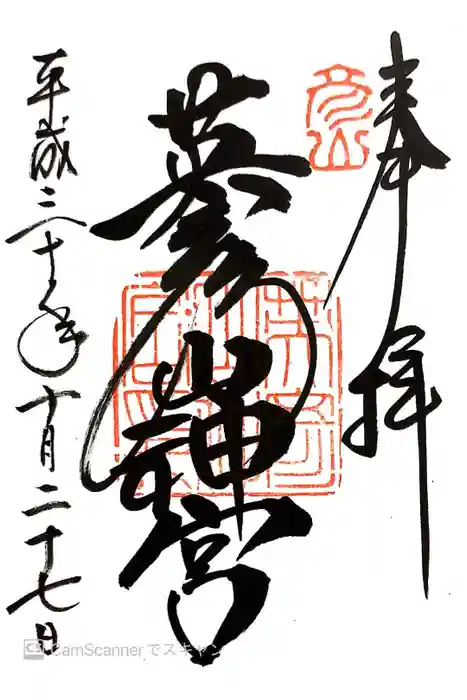 奉拝
彦山
英彦山神宮
平成三十年十月二十七日
CamScannerでスキャン